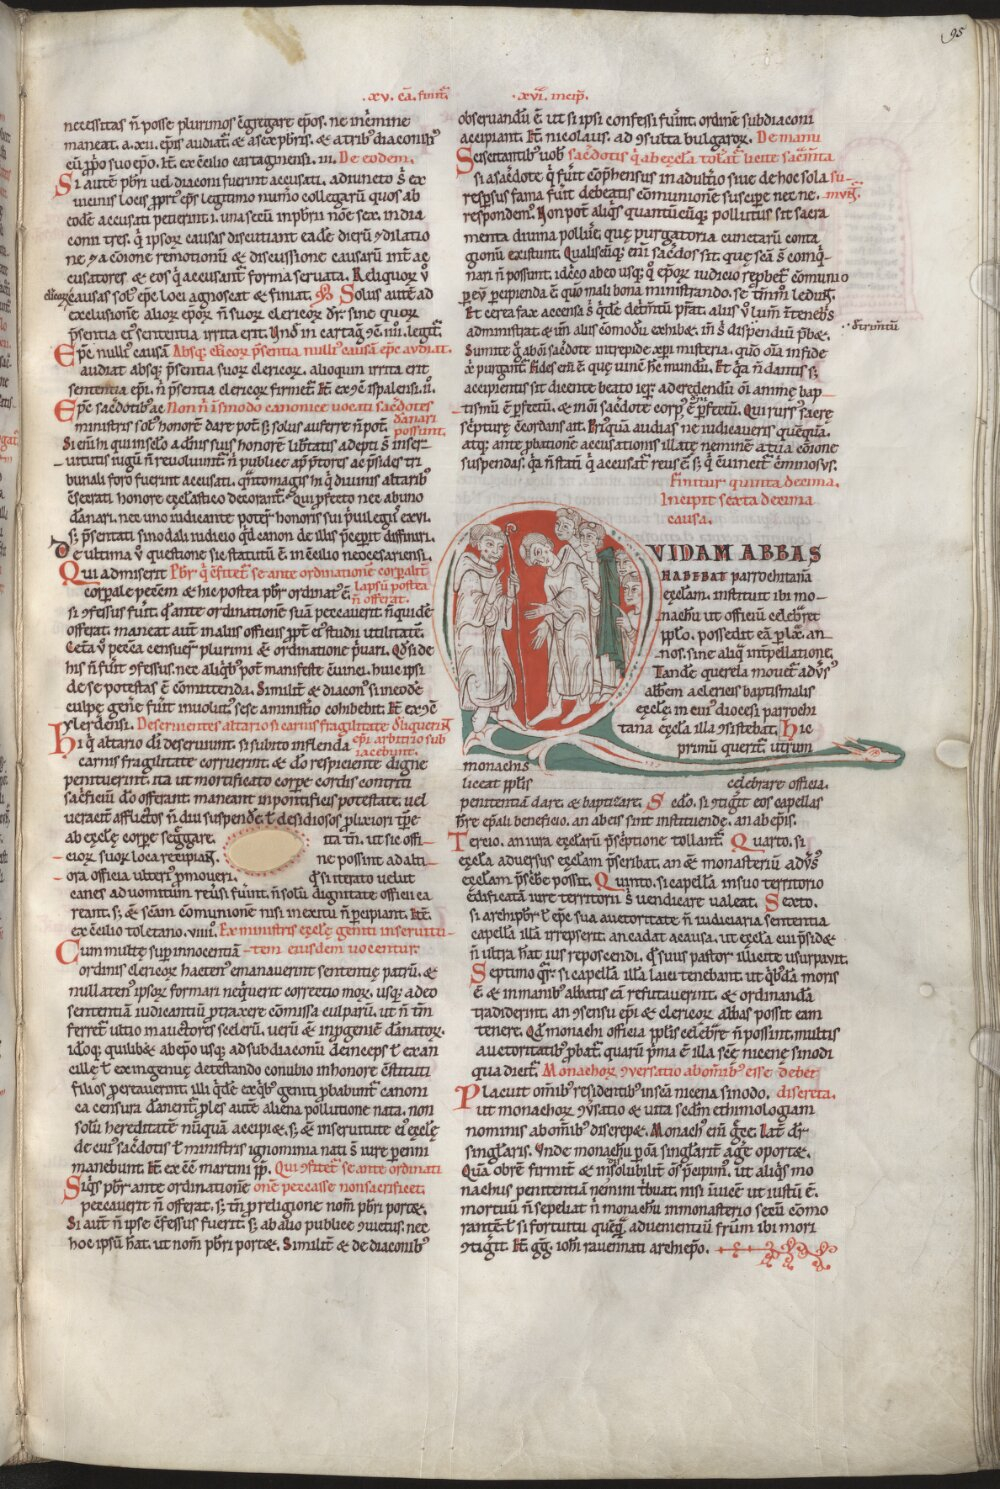 95
.xv. cā. finit͛
.xvi. incip̄.
necessitas n̄ posse plurimos c̄gregare ep̄os. ne in c̄mine
maneat. a .xii. ep̄is audiat͛. & a sex pb̄ris. & a trib⁹ diaconib⁹
cū p̱prio suo ep̄o. It͛ ex c̄cilio cartaginensi .iii. De eodem.
Si autē pb̄ri uel diaconi fuerint accusati. adiuncto s̄ ex
uicinis locis
codē accusati petierint
con̄ tres. q̄ ipsoꝝ causas discutiant eadē dierū ⁊ dilatio
ne ⁊ a cōione remotionū & discussione causarū int͛ ac
cusatores & eos q̄ accusant͛ forma seruata. Reliquoꝝ v̄
clericoꝝ
causas sol⁹ ep̄c loci agnoscat & finiat. Solus autē ad
exclusionē alioꝝ ep̄oꝝ n̄ suoꝝ clericoꝝ dr̄. sine quoꝝ
p̄sentia ei⁹ sententia irrita erit. Vnd̄ in cartaḡ. ⁊cͥ .iiii. legit͛.
Ep̄c null⁹ causā Absq; clericoꝝ p̄sentia null⁹ causā ep̄c audiat.
audiat absq; p̄sentia suoꝝ clericoꝝ. alioquin irrita erit
sententia ep̄i. n̄ p̄sentia clericoꝝ firmet͛. It͛ ex ⁊c̄ ispalensi .ii.
Ep̄c sac̄dotib⁹ ac Non n̄ i sinodo canonice uocati sac̄dotes
ministris sol⁹ honorē dare pot̄. s; solus auferre n̄ pot̄. dānari
possunt.
Si enī hi qui in sclo a dn̄is suis honorē lib̄tatis adepti s̄ inser
uitutis iugū n̄ reuoluunt͛. n̄ publice ap̄ p̄tores ac p̄sides tri
bunali foro fuerint accusati. q̄nto magis hi q̄ diuinis altarib⁹
c̄secrati honore ecclastico decorant͛. Qui p̱fecto nec ab uno
dānari. nec uno iudicante poter̄ honoris sui p̱uilegiis exui.
s; p̄sentati sinodali iudicio qd̄ canon de illis p̄cepit diffiniri.
De ultima v̄ questione sic statutū ē in c̄cilio neocesariensi.
Qui admiserit Pb̄r q̄ c̄fitet͛ se ante ordinationē corporalit͛
corporale peccm̄ & hic postea pb̄r ordinat⁹ ē. lapsū postea
n̄ offerat.
si ⁊fessus fuit. qd̄ ante ordinationē suā peccauerit. n̄ quidē
offerat. maneat autē in aliis officiis p̱pt͛ ei⁹ studii utilitatē.
Cet͛a v̄ peccā censuer̄ plurimi & ordinatione p̱uari. Qd̄ si de
his n̄ fuit ⁊fessus. nec aliq̄b⁹ pot̄ manifeste c̄uinci. huic ipsi
de se potestas ē cōmittenda. Similit͛ & diacon⁹ si in eodē
culpe gen̄e fuit inuolut⁹ sese a ministio cohibebit. It͛ ex ⁊c̄
ylerdensi. Deseruientes altario si carnis fragilitate deliquerint
Hi q̄ altario dī deseruiunt. si subito in flenda ep̄i arbitrio sub
iacebunt.
carnis fragilitate corruerint. & dō respiciente digne
penituerint. ita ut mortificato corpe cordis contriti
sac̄ficiū dō offerant. maneant in pontificis potestate. uel
ueracit͛ afflictos n̄ diu suspend̄e. t̄ desidiosos p̱lixiori tp̄e
ab ecclē corpe seḡgare. ita tn̄. ut sic offi
cioꝝ suoꝝ loca recipiaṉ. ne possint ad alti
ora officia ulteri⁹ p̱moueri. Qd̄ si iterato uelut
canes ad uomitum reūsi fuīnt. n̄ solū dignitate officii ca
reant. s; & sc̄am cōmunionē nisi in exitu n̄ percipiant. It͛
ex c̄cilio toletano .viiii. Ex ministris ecclę geniti in seruitu
Cum multę sup̱ innocentiā tem eiusdem uocentur.
ordinis clericoꝝ hacten⁹ emanauerint sententię patrū. &
nullaten⁹ ipsoꝝ formari neq̄uerit correctio moꝝ. usq; adeo
sententiā iudicantiū p̱traxere cōmissa culparū. ut n̄ tm̄
ferret͛ ultio in auctores scelerū. uerū & in p̱geniē dānatoꝝ.
Idoq; quilib& ab ep̄o usq; ad subdiaconū deinceps t̄ ex an
cillę t̄ ex ingenuę detestando conubio in honore c̄stituti
filios p̱creauerint. illi q̄dē ex q̄b⁹ geniti p̱babunt͛. canoni
ca censura dānent͛. p̱les autē aliena pollutione nata. non
solū hereditatē nūquā accipi&. s; & in seruitute ei⁹ ecclę
de cui⁹ sac̄dotis t̄ ministris ignominia nati s̄ iure p̱enni
manebunt. It͛ ex c̄c̄ martini pp̄. Qui ⁊fitet͛ se ante ordinati
Siq̄s pb̄r ante ordinationē onē peccasse non sacrificet.
peccauerit n̄ offerat. s; tn̄ p̱ religione nom̄ pb̄ri port&.
Si aut̄ n̄ ipse c̄fessus fuerit. s; ab alio publice ⁊uictus. nec
hoc ipsū hāt. ut nom̄ pb̄ri port&. Similit͛ & de diaconib⁹
obseruandū ē. ut si ipsi confessi fuīnt. ordinē subdiaconi
accipiant. It͛ nicolaus. ad ⁊sulta bulgaroꝝ. De manu
Sciscitantib⁹ uob̄ sac̄dotis q̄ ab ecc̄la tolat͛ licite sac̄mta
si a sac̄dote q̄ fuit cōp̄hensus in adult̄io siue de hoc sola su
mūt͛.
resp̱sus fama fuit debeatis cōmunionē suscipe nec ne.
respondem⁹. Non pot̄ aliq̄s quantūcūq; pollutus sit sacra
menta diuina polluere. quę purgatoria cunctarū conta
gionū existunt. Qualiscūq; enī sac̄dos sit. quę sc̄a s̄ coinq̄
nari n̄ possunt. idcirco ab eo usq; q̄ ep̄oꝝ iudicio rep̱bet͛ cōmunio
percipienda ē. quo
Et cerea fax accensa s̄ q̄dē detrim̄tū p̄stat. aliis v̄ lum̄ i tenebis
detrim̄tū
administrat. & un̄ aliis cōmodū exhib&. in s̄ dispendiū p̱b&.
Sumite ḡ ab oī sac̄dote intrepide xp̄i misteria. quō oīa in fide
x̄ purgant͛. Fides enī ē. quę uincit hc̄ mundū. Et q̄a n̄ dantis s;
accipientis sit dicente beato ier̄. ad credendū oī anime bap
tismū ē p̱fectū. & in oī sac̄dote corp⁹ x̄ ē p̱fectū. Qui rursū sacrę
sc̄pturę c̄cordans ait. Priq̄uā audias ne iudicaueris quēq̄uā.
atq; ante p̱bationē accusationis illatę neminē a tua cōione
suspendas. q̄a n̄ statī q̄ accusat͛ reus ē. s; q̄ cuincit͛ c̄minosus.
Finitur quinta decima.
Incipit sexta decima
causa.
QVIDAM ABBAS
HABEBAT parrochitanā
ecclam. instituit ibi mo
nachū ut officiū celebret
pplo. possedit eā p̱ .xl. an
nos. sine aliq̄ int͛pellatione.
Tandē querela mouet͛ aduersus
abbem a clericis baptismalis
ecclę. in cui⁹ diocesi parrochi
tana eccla illa ⁊sistebat. Hic
primū querit͛. utrum
monachis
liceat pplis celebrare officia.
penitentiā dare. & baptizare. Sedo. si ⁊tiḡit eos capellas
hr̄e ep̄ali beneficio. an ab eis sint instituendę. an ab ep̄is.
Tercio. an iura ecclarū p̄sc̄ptione tollant͛. Quarto. si
eccla aduersus ecclam p̄scribat. an & monasteriū aduersus
ecclam p̄scb̄e possit. Quinto. si capella in suo territorio
edificatā iure territorii s̄ uendicare ualeat. Sexto.
si archipb̄r t̄ ep̄c sua auctoritate n̄ iudiciaria sententia
capellā illā irrepserit. an cadat a causa. ut eccla cui p̄sid&
n̄ ultra hāt ius reposcendi. qd̄ suus pastor illicite usurpauit.
Septimo qr̄. si capellā illā laici tenebant. ut q̄bdā moris
ē. & in manib⁹ abbatis eā refutauerint. & ordinandā
tradiderint. an ⁊sensu ep̄i & clericoꝝ abbas possit eam
tenere. Qd̄ monachi officia pplis celebr̄e n̄ possint. multis
auctoritatib⁹ p̱bat͛. quarū p̄ma ē illa sc̄ę nicenę sinodi
qua dicit͛. Monachoꝝ ⁊uersatio ab om̄ib⁹ esse debet
Placuit om̄ib⁹ residentib⁹ in sc̄a nicena sinodo. discreta.
ut monachoꝝ ⁊uersatio & uita sedm̄ ethimologiam
nominis ab om̄ib⁹ discrep&. Monach⁹ enī grece. Lat̄ dr̄
singlaris. Vnde monachū p̱ oīa singlarit͛ aḡe oport&.
Quā obrē firmit͛ & insolubilit͛ om̄s p̄cipim⁹. ut aliq̄s mo
nachus penitentiā nemini tribuat. nisi inuicē ut iustū ē.
mortuū n̄ sepeliat n̄ monachū in monasterio secū cōmo
rantē. t̄ si fortuitu quēq̄. aduenientiū fr̄um ibi mori
⁊tiḡit. It͛ greg̱. iohī rauennati archiep̄o.